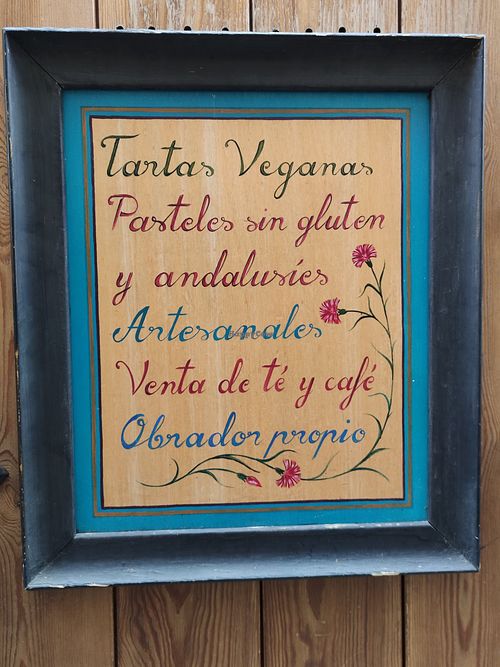 Tartas Veganas
Pasteles sin gluten
y andalusíes
Artesanales
Venta de té y café
Obrador propio